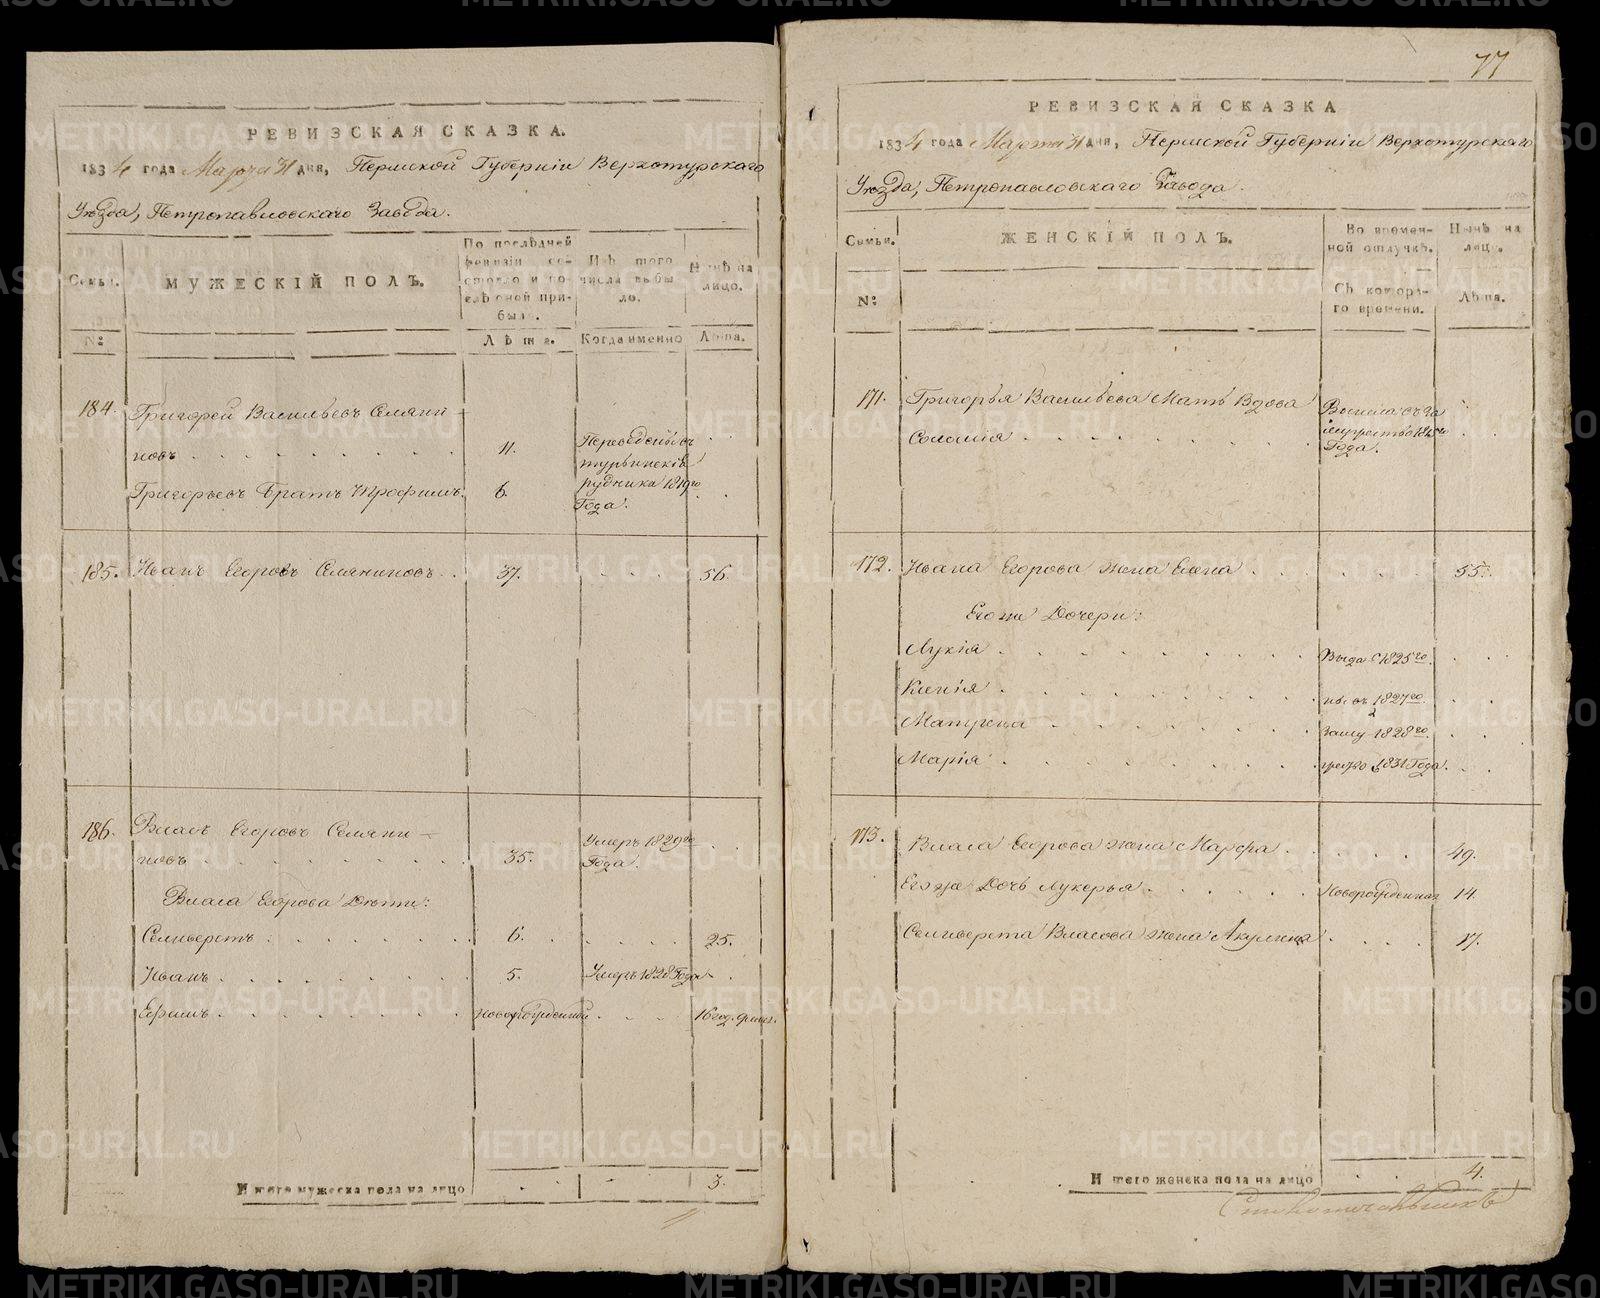 РЕВИЗСКАЯ СКАЗКА.
1834 года Марта 31 дня, Пермской Губерніи Верхотурскаго
Уѣзда, Петропавловскаго Завода.
Семьи.
МУЖЕСКІЙ ПОЛЪ.
По послѣдней ревизіи состояло и послѣ оной прибыло.
Изъ того числа выбыло.
Нынѣ на лицо.
№:
Лѣта.
Когда именно
Лѣта.
184. Григорей Васильевъ Селяни-
новъ 11. Переведены въ
турьинскіе
Григорьевъ Братъ Трофимъ. 6. рудника 1819го
Года.
185. Иванъ Егоровъ Селяниновъ 37. 56.
186. Власъ Егоровъ Селяни-
новъ 35. Умеръ 1829го
Года.
Власа Егорова Дѣти:
Селиверстъ 6. 25.
Иванъ 5. Умеръ 1828 Года
Ефимъ новорожденный 16 год.
И того мужеска пола на лицо 3.
77
РЕВИЗСКАЯ СКАЗКА
1834 года Марта 31 дня, Пермской Губерніи Верхотурскаго
Уѣзда, Петропавловскаго Завода.
Семьи.
ЖЕНСКІЙ ПОЛЪ.
Во временной отлучкѣ.
Нынѣ на лицо.
№:
Съ котораго времени.
Лѣта.
171. Григорья Васильева Мать Вдова
Соломія Года.
172. Ивана Егорова жена Елена 55.
Его же Дочери:
Лукія Выда 1825го
Ксенія ны въ 1827го
Матрена заму 1828го
Марія 1831 Года.
173. Власа Егорова жена Марфа 49.
Его же Дочь Лукерья Новорожденная 14.
Селиверста Власова жена Акулина 17.
И того женска пола на лицо 4.
METRIKI.GASO-URAL.RU